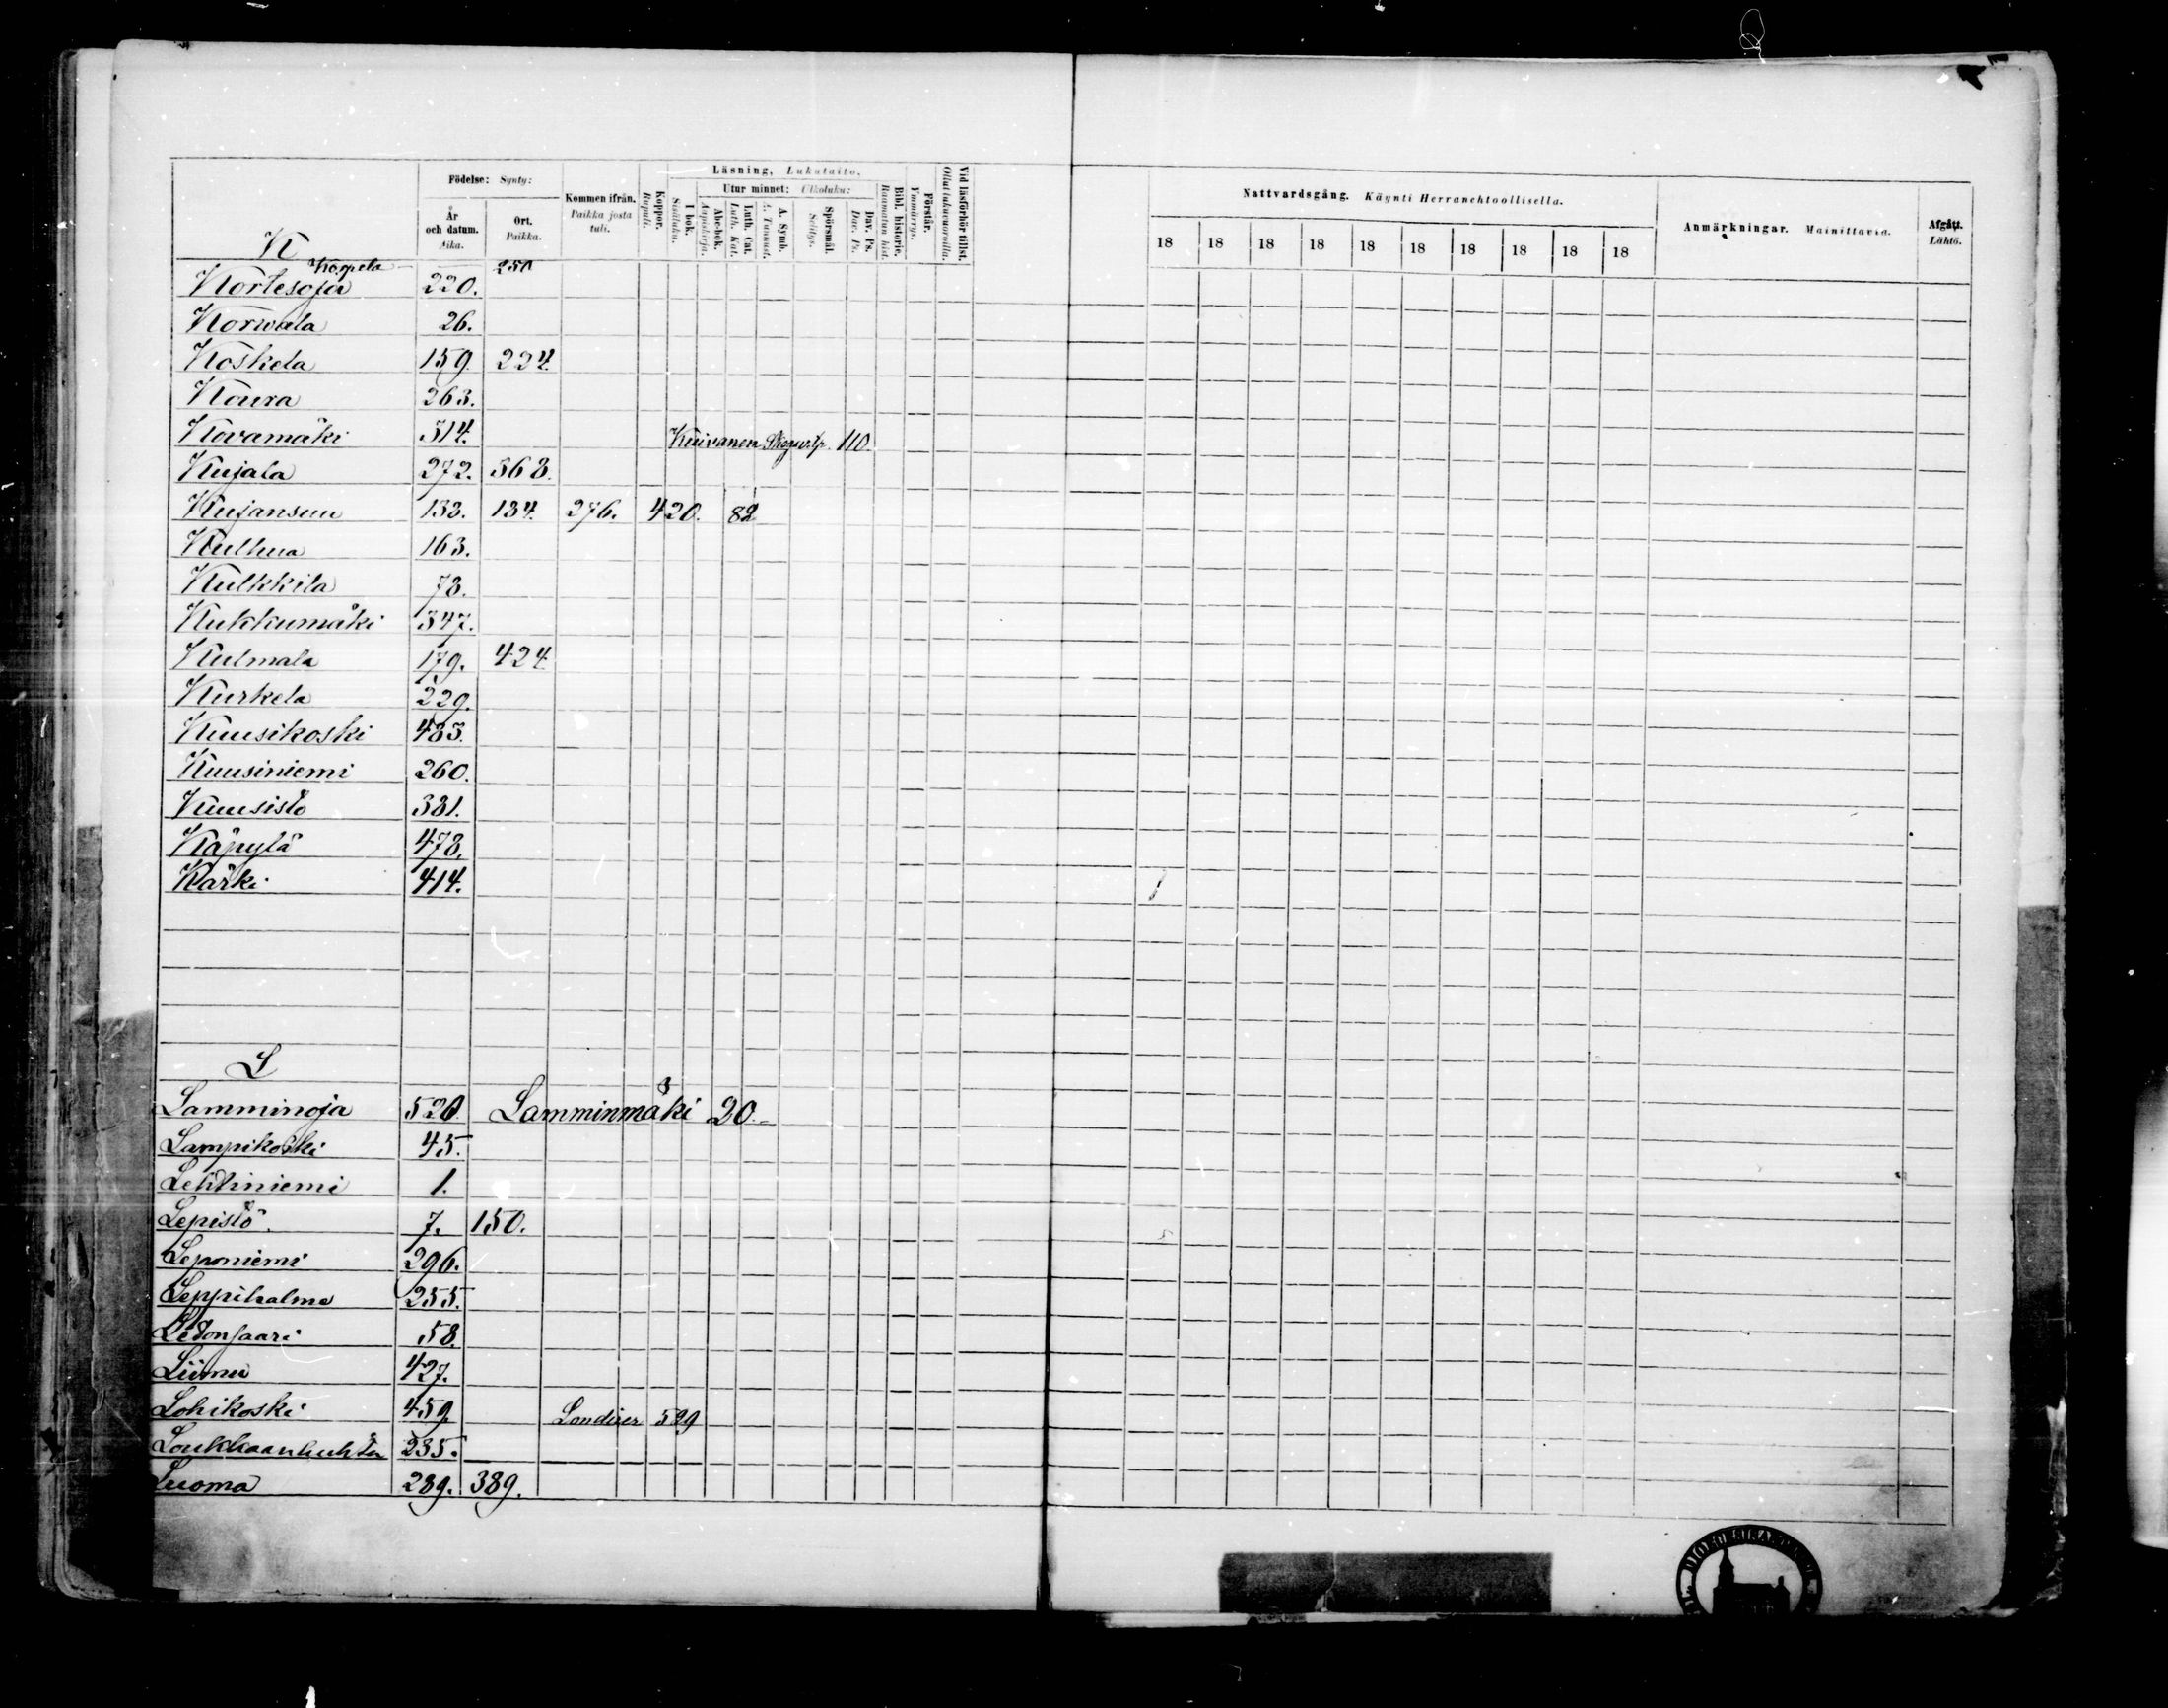 Födelse: Synty:
År och datum. Aika.
Ort. Paikka.
Kommen ifrån. Paikka josta tuli.
Koppor. Rupuli.
Läsning, Lukutaito.
I bok. Sisäluku.
Utur minnet: Ulkoluku:
Abc-bok. Aapiskirja.
Luth. Cat. Luth. Kat.
A. Symb. A. Tunnust.
Spörsmål. Selitys.
Dav. Ps. Dav. Ps.
Bibl. historie. Raamatun hist.
Förstår. Ymmärrys.
Vid läsförhör tillst. Ollut lukuvuoroilla.
Nattvardsgång. Käynti Herranehtoollisella.
18 18 18 18 18 18 18 18 18 18
Anmärkningar. Mainittavia.
Afgått. Lähtö.
K
Kopela 250
Kortesoja 220.
Korwala 26.
Koskela 159. 224.
Koura 263.
Kovamäki 314. Kuivanen 110.
Kujala 272. 368.
Kujansuu 133. 134. 276. 420. 82
Kulhua 163.
Kulkkila 78.
Kukkumäki 347.
Kulmala 179. 424
Kurkela 229.
Kuusikoski 483.
Kuusiniemi 260.
Kuusisto 381.
Käpylä 478.
Kärki 414.
L
Lamminoja 520 Lamminmäki 20.
Lampikoski 45.
Lehtiniemi 1.
Lepistö 7. 150.
Leponiemi 296.
Leppihalme 255.
Letonsaari 58.
Liimu 427.
Lohikoski 459 529
Loukkaanhuhta 235.
Luoma 289. 389.